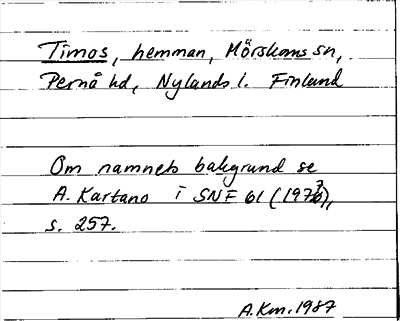 Timos, hemman, Mörskoms sn,
Pernå hd, Nylands l. Finland
Om namnets bakgrund se
A. Kartano i SNF 61 (1977),
s. 257.
A.Km. 1987